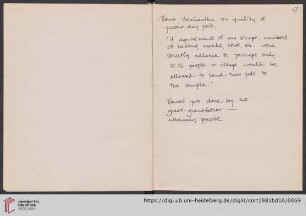 67
Bawa Devanathan on quality of
present day pots.
"If requirements of size, shape, numbers
of turning marks, size etc. were
strictly adhered to, perhaps only
10-12 people in village would be
allowed to send their pots to
the temple"
Best pots done by his
great-grandfather —
UNIVERSITÄTS-
BIBLIOTHEK
HEIDELBERG
https://digi.ub.uni-heidelberg.de/diglit/cort1981bd10/0069